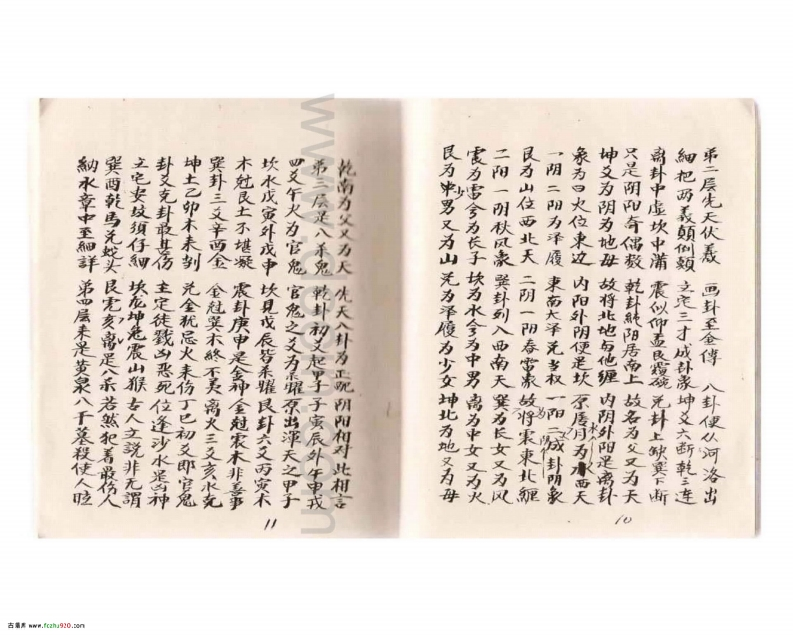 弟二层先天伏羲 画卦至金傳 八卦便从河洛出
细把两義颠倒颠 立定三才成卦象 坤爻六断乾三连
离卦中虚坎中满 震似仰盂艮覆碗 兑卦上缺巽下断
只是阴阳奇偶数 乾卦純阳居南上 故名为父又为天
坤爻为阴为地母 故将北地与他缠 内阴外阳是离卦
象为日火位東边 内阳外阴便是坎 原属月为水西天
一阴二阳为泽履 東南大泽兑当权 一阳二阴成卦阴象
艮为山位西北天 二阴一阳春雷豪 故将震東北缠
二阳一阴秋风象 巽卦列入西南天 巽为長女又为风
震为雷兮为长子 坎为水兮为中男 离为中女又为火
艮为少男又为山 兑为泽履为少女 坤北为地又为母
10
乾南为父又为天 先天八卦为正砚 阴阳相对此相言
弟三层是八杀鬼 乾卦初爻起甲子 子寅辰外午申戌
四爻午火为官鬼 官鬼之爻为杀曜 原出渾天之甲子
坎水戊寅外戊申 坎見戊辰皆杀曜 艮卦六爻丙寅木
木尅艮土不堪凝 震卦庚申是金神 金尅震木非善事
巽卦三爻辛酉金 金尅巽木終不美 离火三爻亥水克
坤土乙卯木来刑 兑金犹忌火来伤 丁巳初爻即官鬼
卦爻克卦最甚伤 主定徒戮凶恶死 位逢沙水是凶神
立宅安坟須仔细 坎龙坤兔震山猴 古人立說非无謂
巽酉乾馬兑蛇头 艮虎离亥是八杀 若然犯着最伤人
納水章中至细詳 弟四层来是黄泉 八干墓殺使人
11
www.fczhu920.com
古易斋 www.fczhu920.com